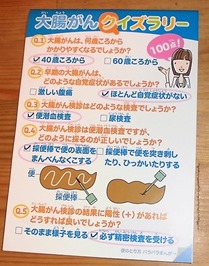 大腸がん クイズラリー
100点!
Q.1 大腸がんは、何歳ころから
かかりやすくなるでしょうか?
☑40歳ころから □60歳ころから
Q.2 早期の大腸がんは、
どのような自覚症状があるでしょうか?
□激しい腹痛 ☑ほとんど自覚症状がない
Q.3 大腸がん検診はどのような検査でしょうか?
☑便潜血検査 □尿検査
Q.4 大腸がん検診は便潜血検査ですが、
どのように採るのが正しいでしょうか?
☑採便棒で便の表面を
まんべんなくこする
□採便棒で便を突き刺し
たり、ひっかいたりする
採便棒
採便棒
Q.5 大腸がん検診の結果に陽性(+)があれば
どうすれば良いでしょうか?
□そのまま様子を見る ☑必ず精密検査を受ける